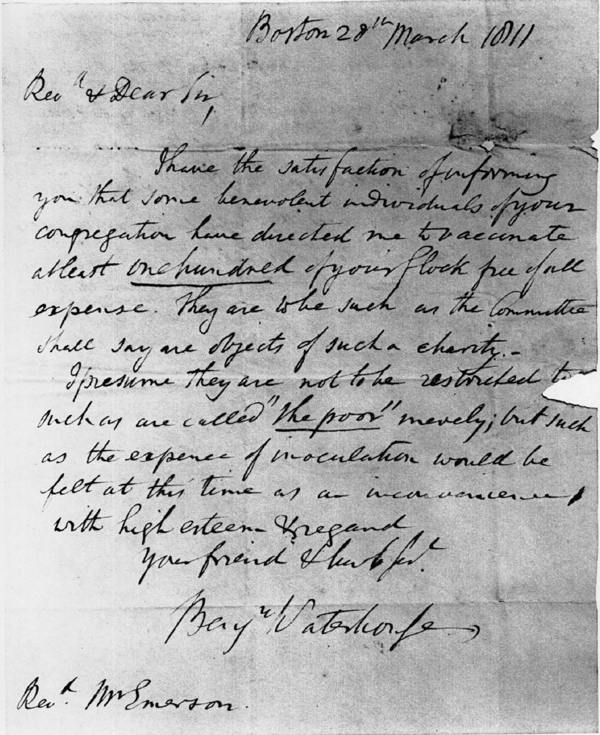 Boston 28th March 1811
Revd & Dear Sir,
I have the satisfaction of informing
you that some benevolent individuals of your
congregation have directed me to vaccinate
at least one hundred of your flock free of all
expense. They are to be such as the Committee
shall say are objects of such a charity.-
I presume they are not to be restricted to
such as are called "the poor" merely; but such
as the expence of inoculation would be
felt at this time as an inconvenience,
with high esteem & regard
your friend & humb Servt.
Benjn Waterhouse
Revd. Mr Emerson.